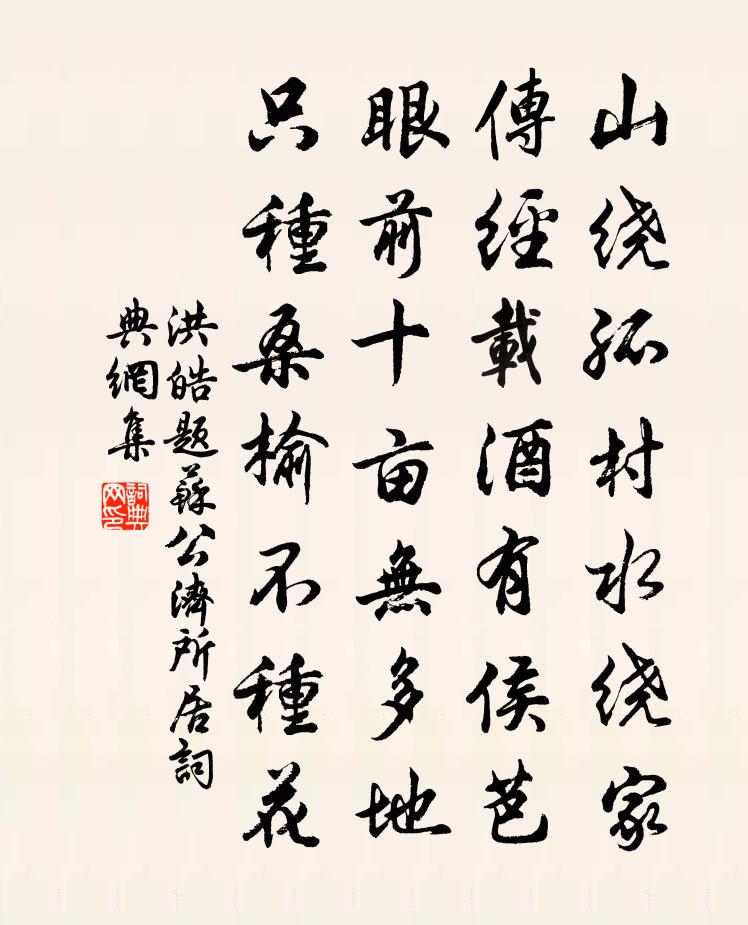 山绕孤村水绕家
傳經載酒有侯芭
眼前十亩無多地
只種桑榆不種花
洪皓題蘇公濟所居詞
典網集
詞典网印